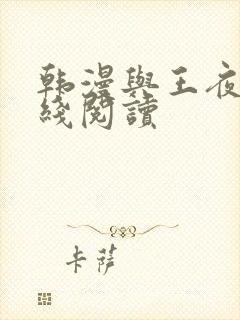 韩漫與王夜
綫閱讀
卡薩